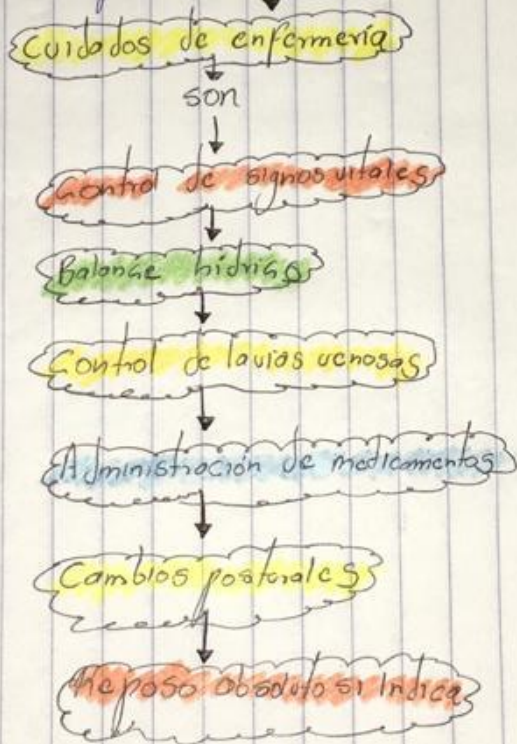 Cuidados de enfermería
son
Control de signos vitales
Balance hídrico
Control de lavias venosas
Administración de medicamentos
Cambios posturales
Reposo absoluto si indica